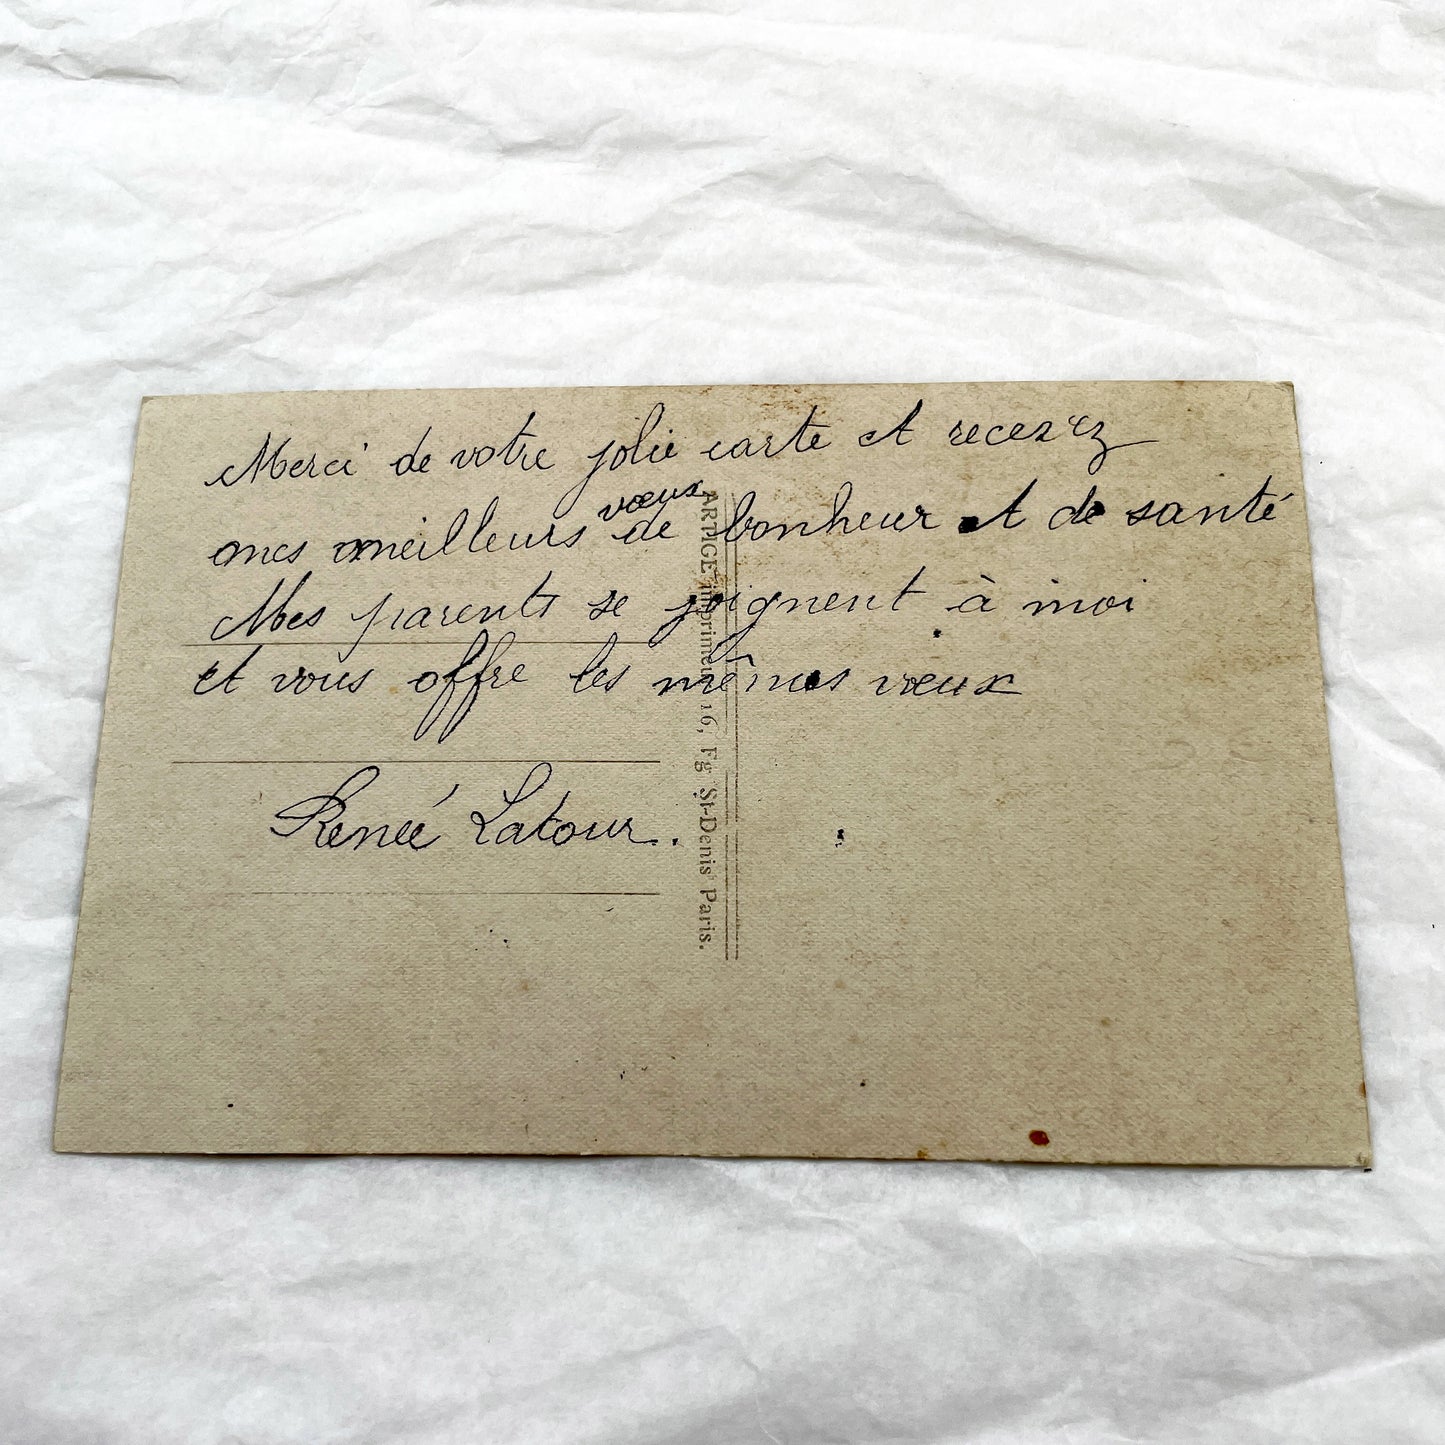 Merci de votre jolie carte et recevez
mes meilleurs vœux de bonheur et de santé
Mes parents se joignent à moi
et vous offre les mêmes vœux
Renée Latour.
ARTIGE imprimeur 16, Fg St-Denis Paris.